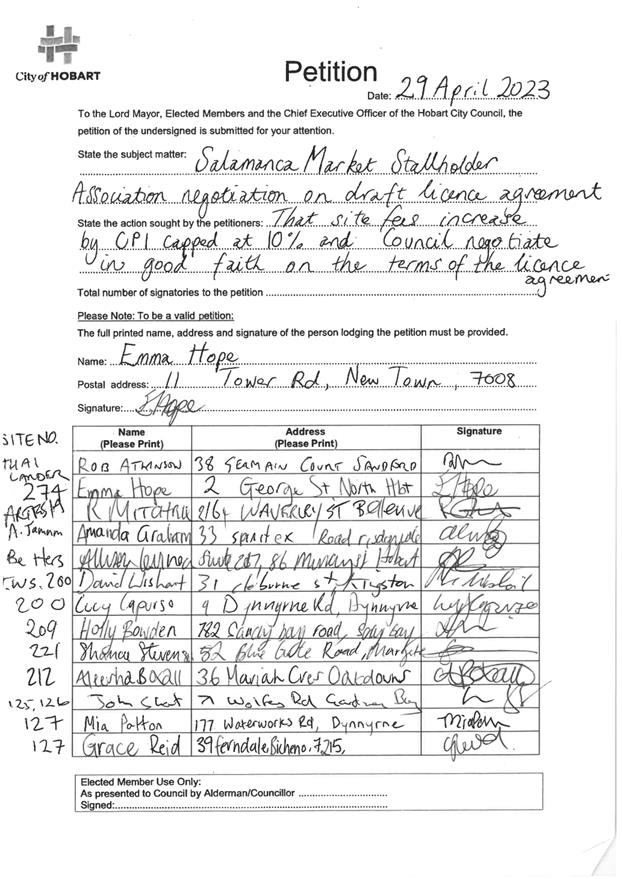 City of HOBART
Petition
Date: 29 April 2023
To the Lord Mayor, Elected Members and the Chief Executive Officer of the Hobart City Council, the
petition of the undersigned is submitted for your attention.
State the subject matter: Salamanca Market Stallholder
Association negotiation on draft licence agreement
State the action sought by the petitioners: That site fees increase
by CPI capped at 10% and Council negotiate
in good faith on the terms of the licence
agreement
Total number of signatories to the petition
Please Note: To be a valid petition:
The full printed name, address and signature of the person lodging the petition must be provided.
Name: Emma Hope
Postal address: 11 Tower Rd, New Town, 7008
Signature: EHope
SITE NO. Name Address Signature
(Please Print) (Please Print)
THAI
LANDER ROB ATKINSON 38 GERMAIN COURT SANDFORD
274 Emma Hope 2 George St North Hbt EHope
R WAVERLEY ST
A. Jamnm Amanda Graham 33 Road
Be Hers 86 Hobart
EWS. 200 David Wishart 31 st Kingston
200 Lucy Capurso 9 Dynnyrne Rd, Dynnyrne
209 Holly Bowden 782 Sandy bay road, Sandy bay
221 Stevens 52 Blue Gate Road, Margate
212 Aleesha Boxall 36 Mariah Cres Oakdowns
125, 126 John Rd
127 Mia Patton 177 Waterworks Rd, Dynnyrne
127 Grace Reid 39 ferndale, Bicheno, 7215,
Elected Member Use Only:
As presented to Council by Alderman/Councillor
Signed: